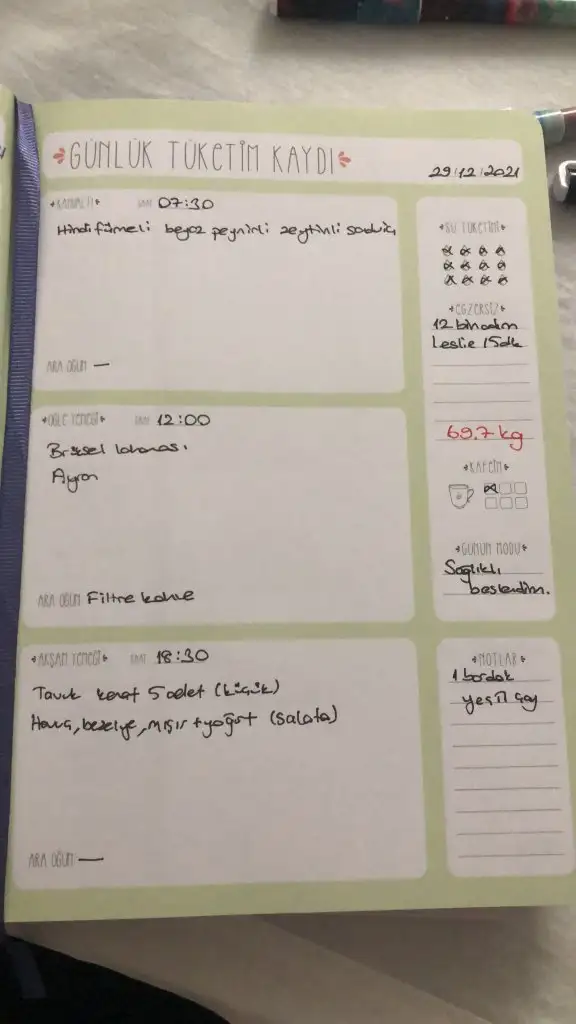 GÜNLÜK TÜKETİM KAYDI
29/12/2021
KAHVALTI SAAT 07:30
Hindi fümeli beyaz peynirli zeytinli sandviç
ARA ÖĞÜN —
ÖĞLE YEMEĞİ SAAT 12:00
Brüksel lahanası
Ayran
ARA ÖĞÜN Filtre kahve
AKŞAM YEMEĞİ SAAT 18:30
Tavuk kanat 5 adet (küçük)
Havuç, bezelye, mısır + yoğurt (salata)
ARA ÖĞÜN —
SU TÜKETİMİ
EGZERSİZ
12 bin adım
Leslie 15dk
69.7 kg
KAFEİN
GÜNÜN MODU
Sağlıklı
beslendim.
NOTLAR
1 bardak
yeşil çay